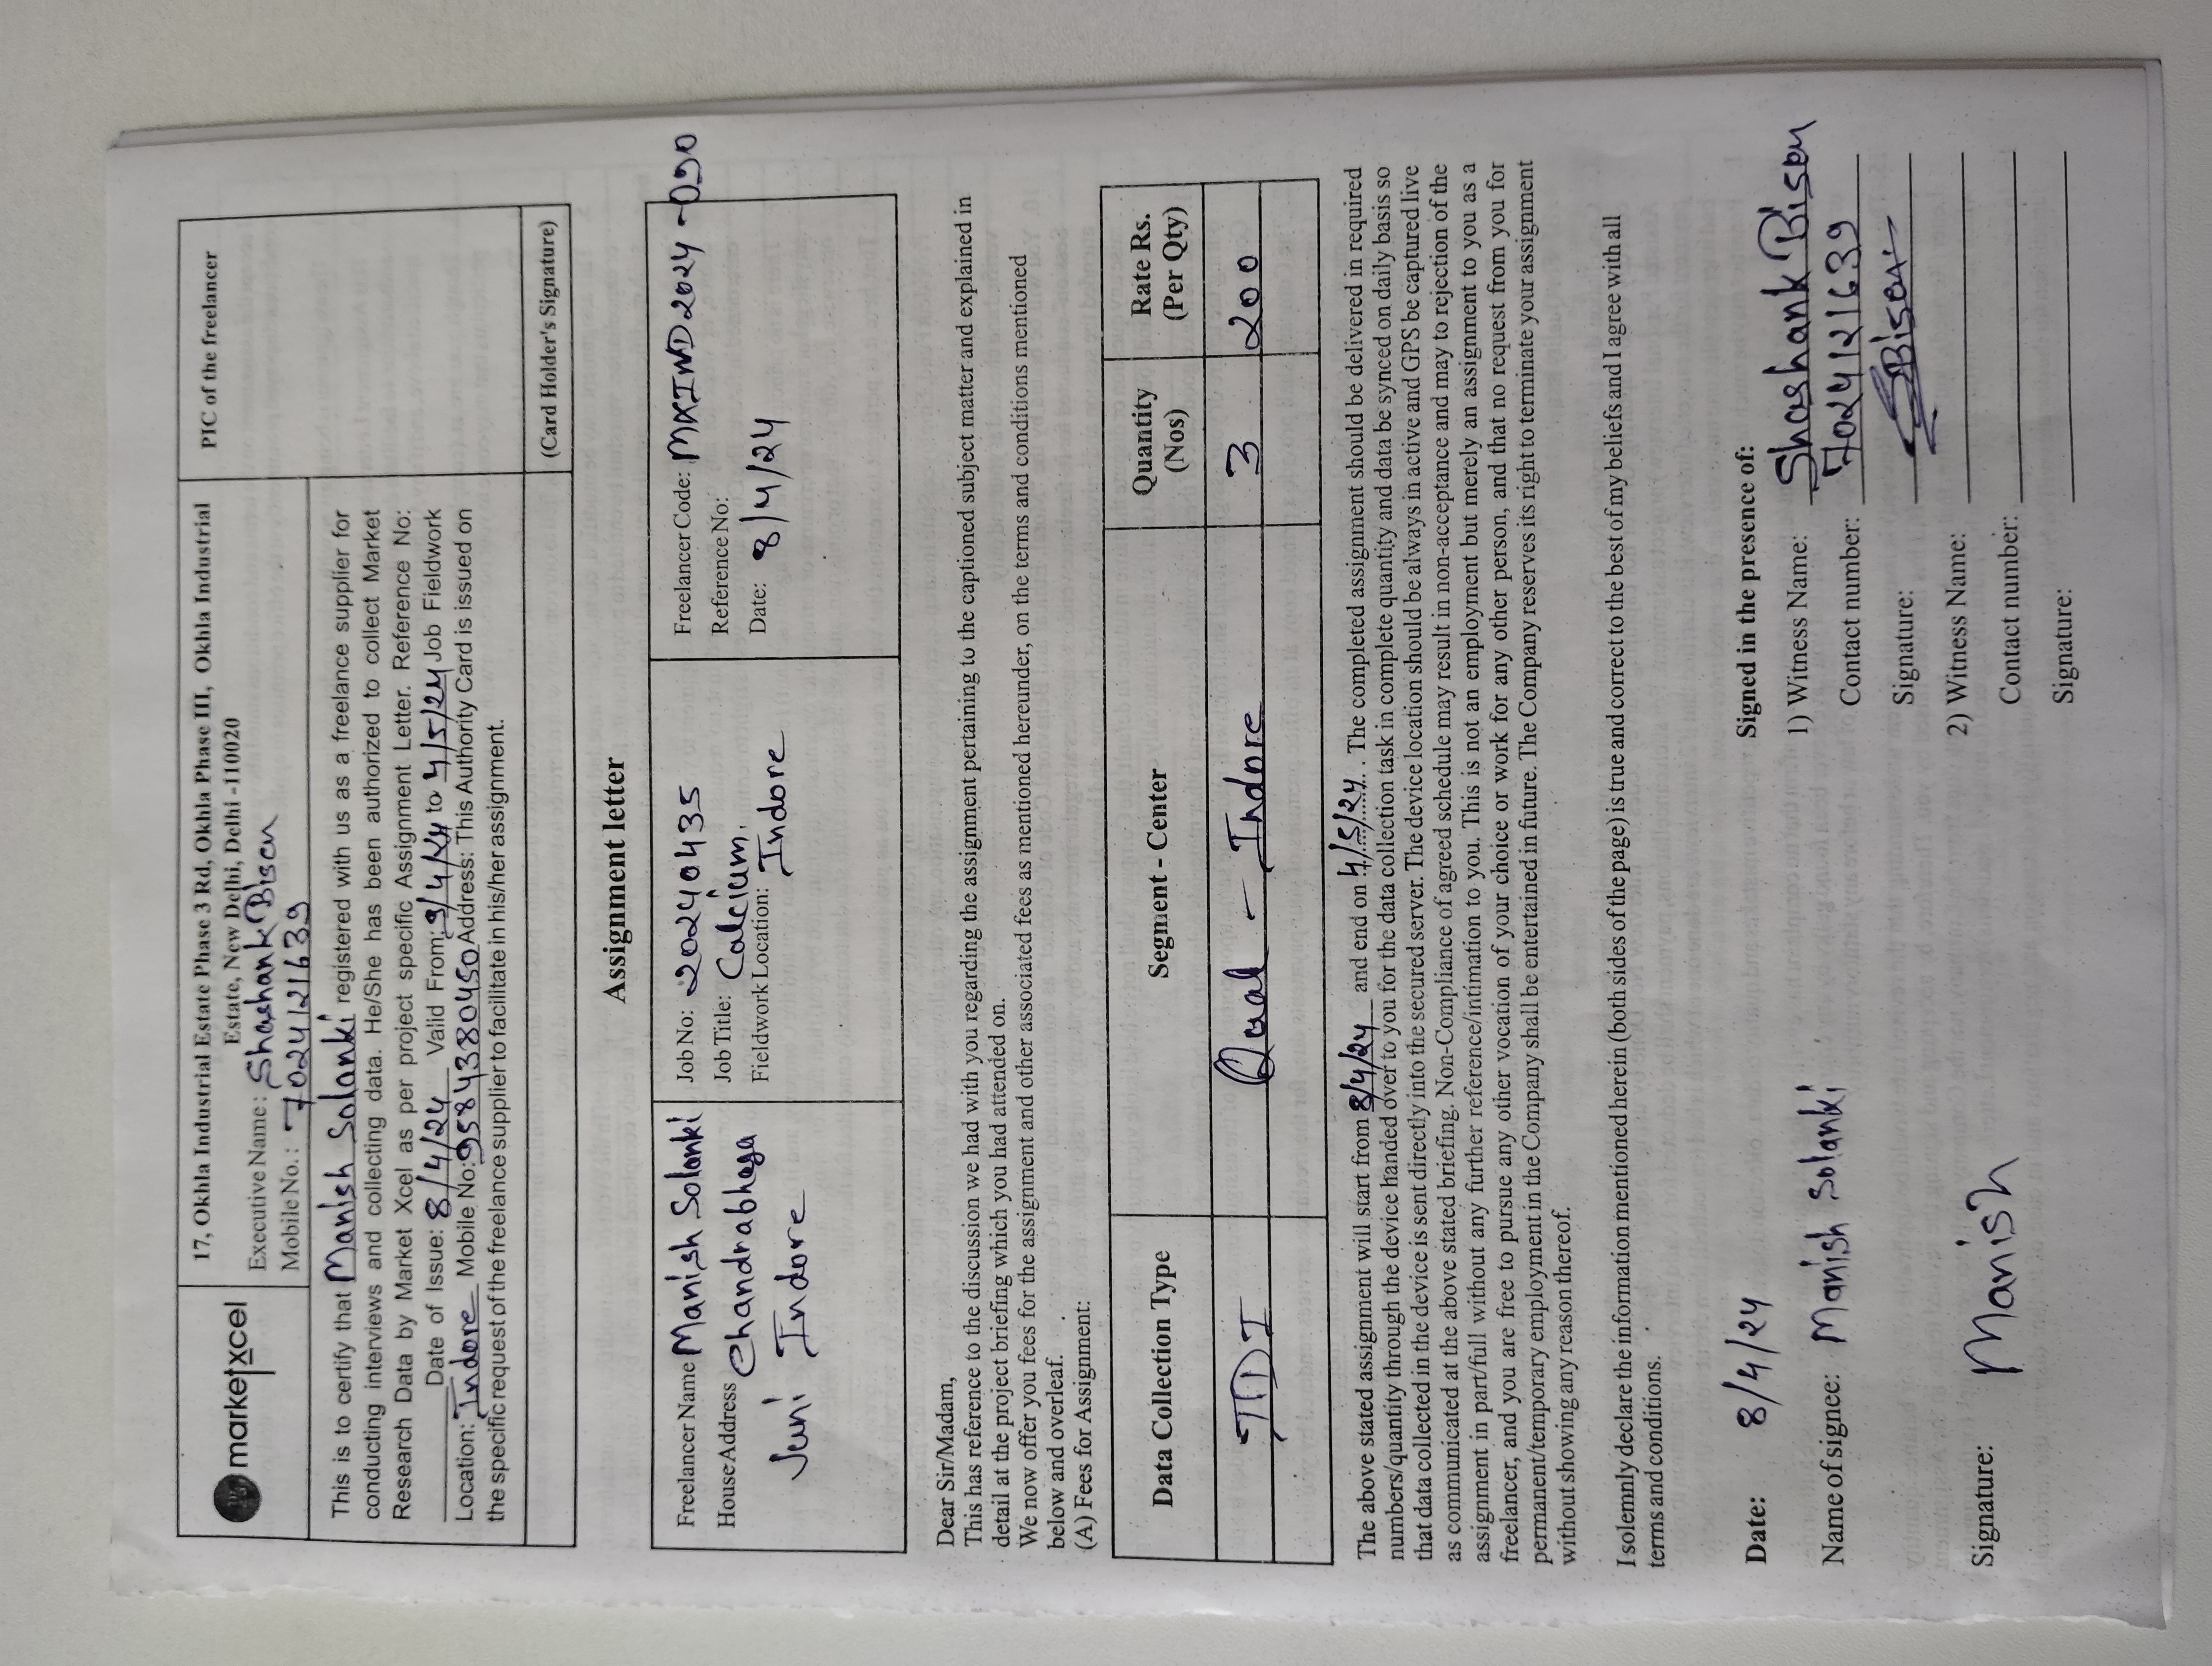 marketxcel
17, Okhla Industrial Estate Phase 3 Rd, Okhla Phase III, Okhla Industrial
Estate, New Delhi, Delhi -110020
Executive Name: Shashank Bisen
Mobile No.: 7024121639
PIC of the freelancer
This is to certify that Manish Solanki registered with us as a freelance supplier for
conducting interviews and collecting data. He/She has been authorized to collect Market
Research Data by Market Xcel as per project specific Assignment Letter. Reference No:
Date of Issue: 8/4/24 Valid From: 8/4/24 to 4/5/24 Job Fieldwork
Location: Indore Mobile No: 9584380450 Address: This Authority Card is issued on
the specific request of the freelance supplier to facilitate in his/her assignment.
(Card Holder's Signature)
Assignment letter
Freelancer Name Manish Solanki
House Address Chandrabhaga
Juni Indore
Job No: 20240435
Job Title: Calcium.
Fieldwork Location: Indore
Freelancer Code: MXIND2024-090
Reference No:
Date: 8/4/24
Dear Sir/Madam,
This has reference to the discussion we had with you regarding the assignment pertaining to the captioned subject matter and explained in
detail at the project briefing which you had attended on.
We now offer you fees for the assignment and other associated fees as mentioned hereunder, on the terms and conditions mentioned
below and overleaf.
(A) Fees for Assignment:
Data Collection Type Segment - Center Quantity (Nos) Rate Rs. (Per Qty)
IDI Qual - Indore 3 200
The above stated assignment will start from 8/4/24 and end on 4/5/24. The completed assignment should be delivered in required
numbers/quantity through the device handed over to you for the data collection task in complete quantity and data be synced on daily basis so
that data collected in the device is sent directly into the secured server. The device location should be always in active and GPS be captured live
as communicated at the above stated briefing. Non-Compliance of agreed schedule may result in non-acceptance and may to rejection of the
assignment in part/full without any further reference/intimation to you. This is not an employment but merely an assignment to you as a
freelancer, and you are free to pursue any other vocation of your choice or work for any other person, and that no request from you for
permanent/temporary employment in the Company shall be entertained in future. The Company reserves its right to terminate your assignment
without showing any reason thereof.
I solemnly declare the information mentioned herein (both sides of the page) is true and correct to the best of my beliefs and I agree with all
terms and conditions.
Date: 8/4/24
Name of signee: Manish Solanki
Signature: Manish
Signed in the presence of:
1) Witness Name: Shashank Bisen
Contact number: 7024121639
Signature: Bisen
2) Witness Name:
Contact number:
Signature: